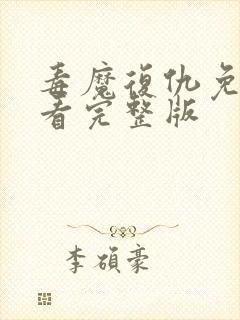 毒魔復仇免
看完整版
李碩豪